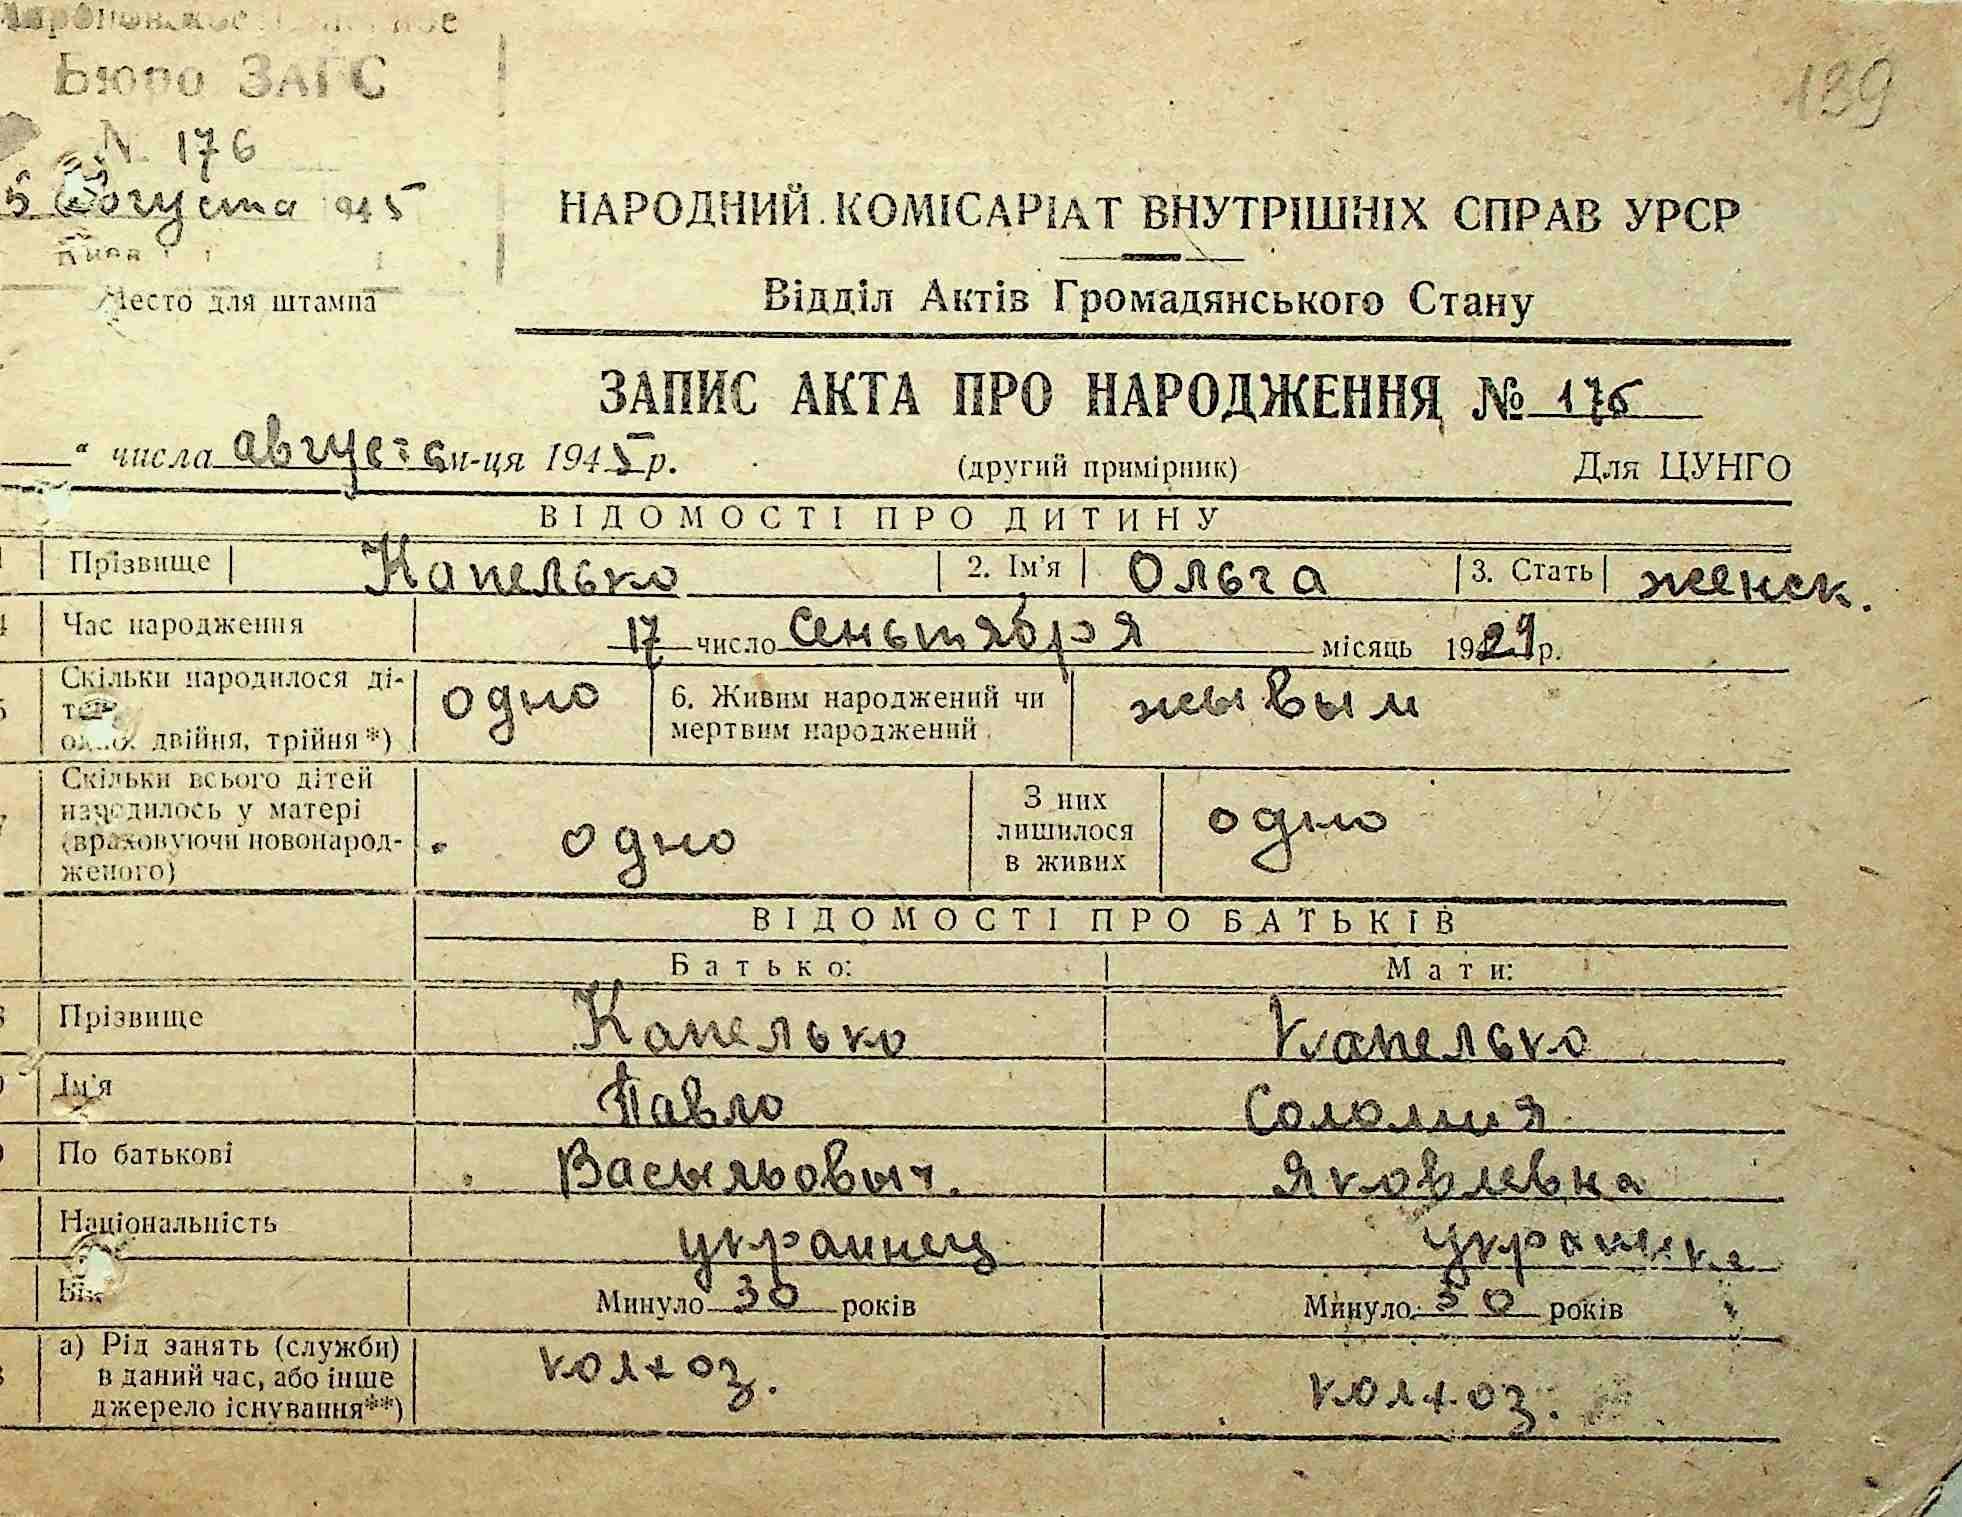 Бюро ЗАГС
N 176
5 Августа 1945
Место для штампа
139
НАРОДНИЙ КОМІСАРІАТ ВНУТРІШНІХ СПРАВ УРСР
Відділ Актів Громадянського Стану
ЗАПИС АКТА ПРО НАРОДЖЕННЯ № 176
" числа август м-ця 1945 р. (другий примірник) Для ЦУНГО
ВІДОМОСТІ ПРО ДИТИНУ
Прізвище Капелько 2. Ім'я Ольга 3. Стать женск.
Час народження 17 число сеньтября місяць 1929 р.
Скільки народилося ді-
двійня, трійня*) одно 6. Живим народжений чи
мертвим народжений жывым
Скільки всього дітей
народилось у матері
(враховуючи новонарод-
женого) одно З них
лишилося
в живих одно
ВІДОМОСТІ ПРО БАТЬКІВ
Батько: Мати:
Прізвище Капелько Капелько
Ім'я Павло Соломия
По батькові Васыльовыч. Яковлевна
Національність украинец украинка
Вік Минуло 30 років Минуло 30 років
а) Рід занять (служби)
в даний час, або інше
джерело існування**) колхоз. колхоз.